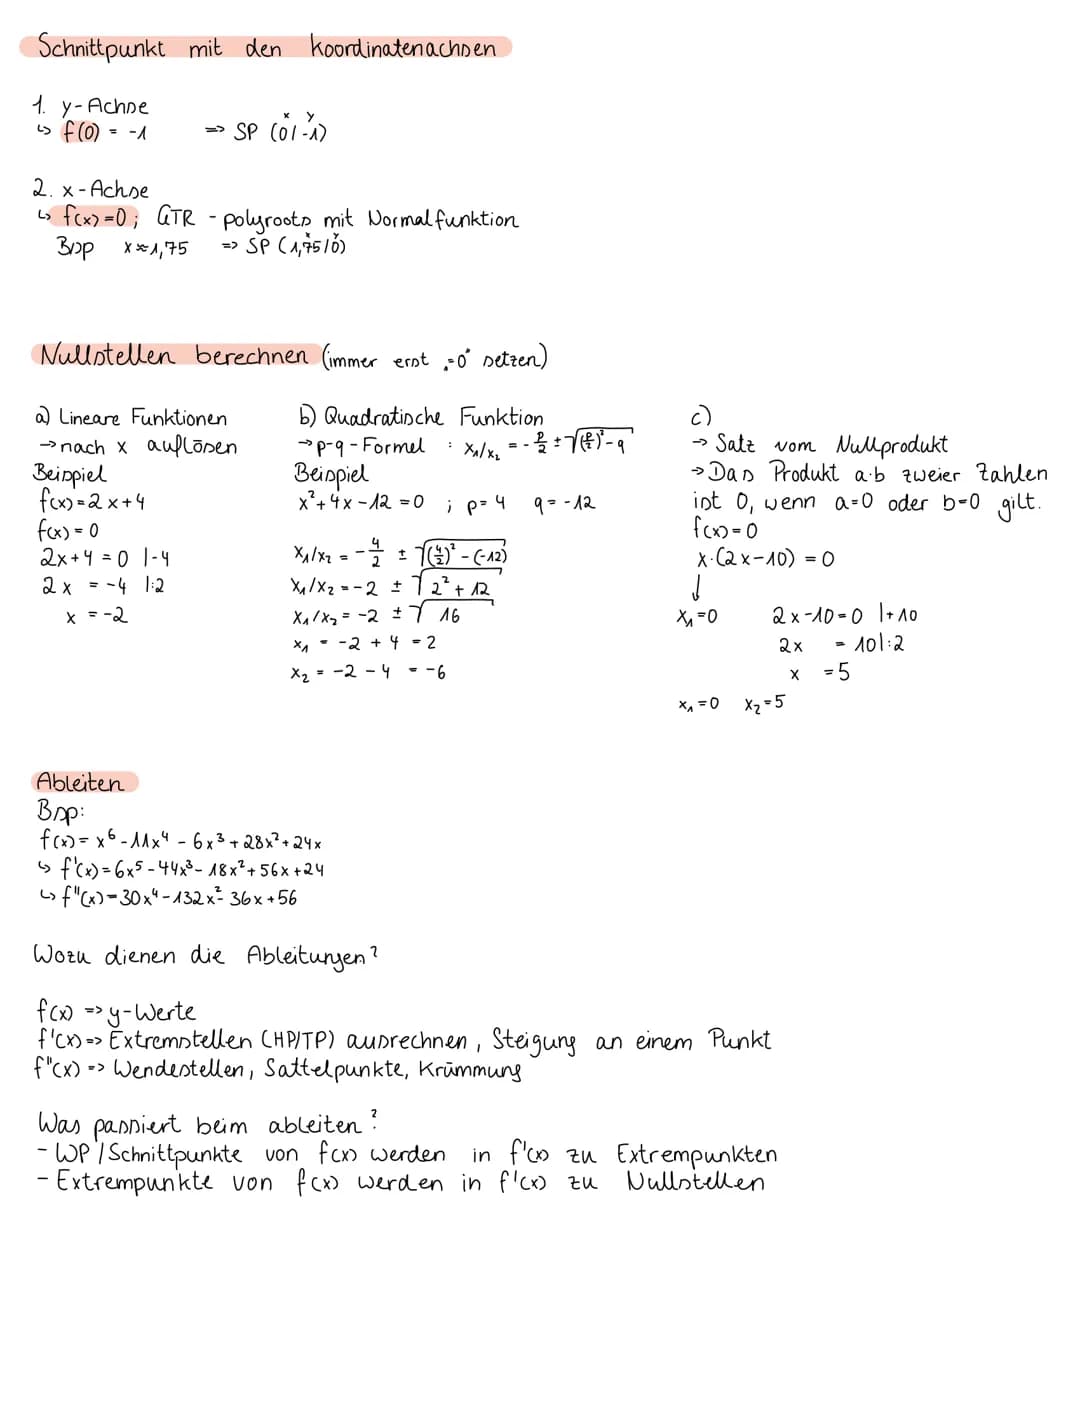 Schnittpunkt mit den Koordinatenachsen
1. y-Achse
↳ f(0) = -1 => SP (0/-1)
x y
2. x-Achse
↳ f(x)=0; GTR - polyroots mit Normalfunktion
Bsp x≈1,75 => SP (1,75/0)
x y
Nullstellen berechnen (immer erst „=0“ setzen)
a) Lineare Funktionen
→ nach x auflösen
Beispiel
f(x)=2x+4
f(x)=0
2x+4=0 |-4
2x = -4 |:2
x = -2
b) Quadratische Funktion
→ p-q-Formel : x₁/x₂ = -p/2 ± √((p/2)²-q)
Beispiel
x²+4x-12=0 ; p=4 q=-12
x₁/x₂ = -4/2 ± √((4/2)²-(-12))
x₁/x₂ = -2 ± √(2²+12)
x₁/x₂ = -2 ± √16
x₁ = -2+4 = 2
x₂ = -2-4 = -6
c)
→ Satz vom Nullprodukt
→ Das Produkt a·b zweier Zahlen
ist 0, wenn a=0 oder b=0 gilt.
f(x)=0
x·(2x-10)=0
↓
x₁=0 2x-10=0 |+10
2x = 10 |:2
x = 5
x₁=0 x₂=5
Ableiten
Bsp:
f(x)= x⁶-11x⁴-6x³+28x²+24x
↳ f'(x)=6x⁵-44x³-18x²+56x+24
↳ f"(x)=30x⁴-132x²-36x+56
Wozu dienen die Ableitungen?
f(x) => y-Werte
f'(x) => Extremstellen (HP/TP) ausrechnen, Steigung an einem Punkt
f"(x) => Wendestellen, Sattelpunkte, Krümmung
Was passiert beim ableiten?
- WP/Schnittpunkte von f(x) werden in f'(x) zu Extrempunkten
- Extrempunkte von f(x) werden in f'(x) zu Nullstellen